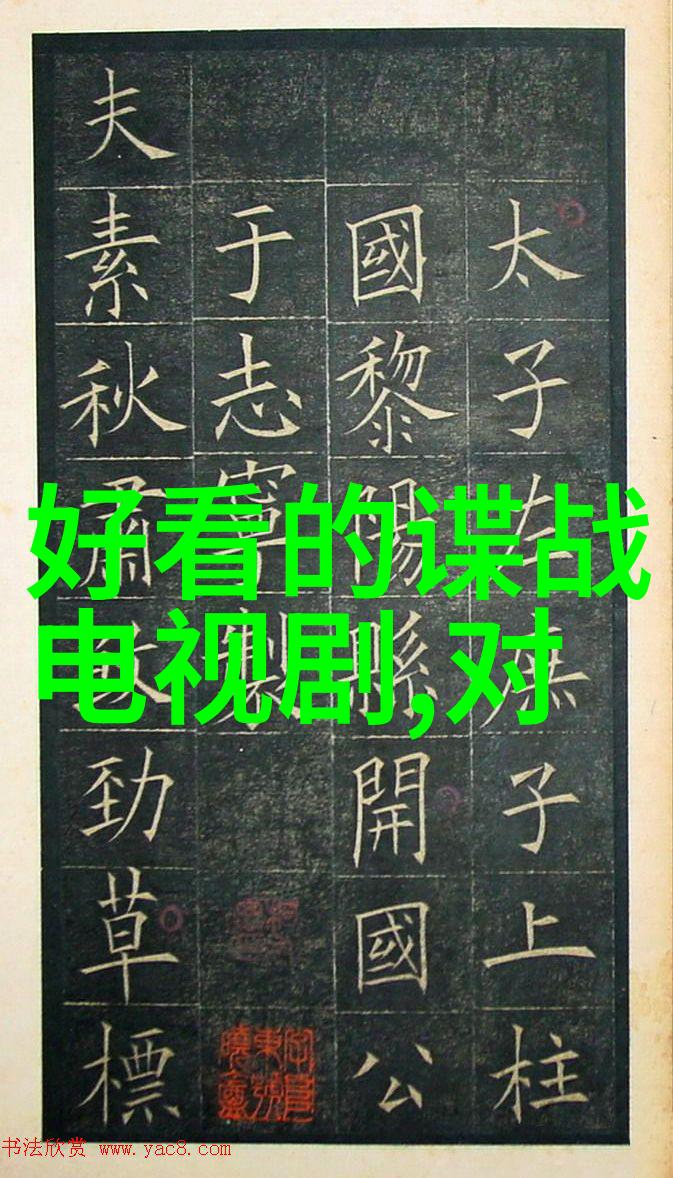 太子左庶子上柱
國黎陽縣開國公
于志寧製
夫素秋肅勁草標
好看的谍战
电视剧,对
书法欣赏 www.yac8.com